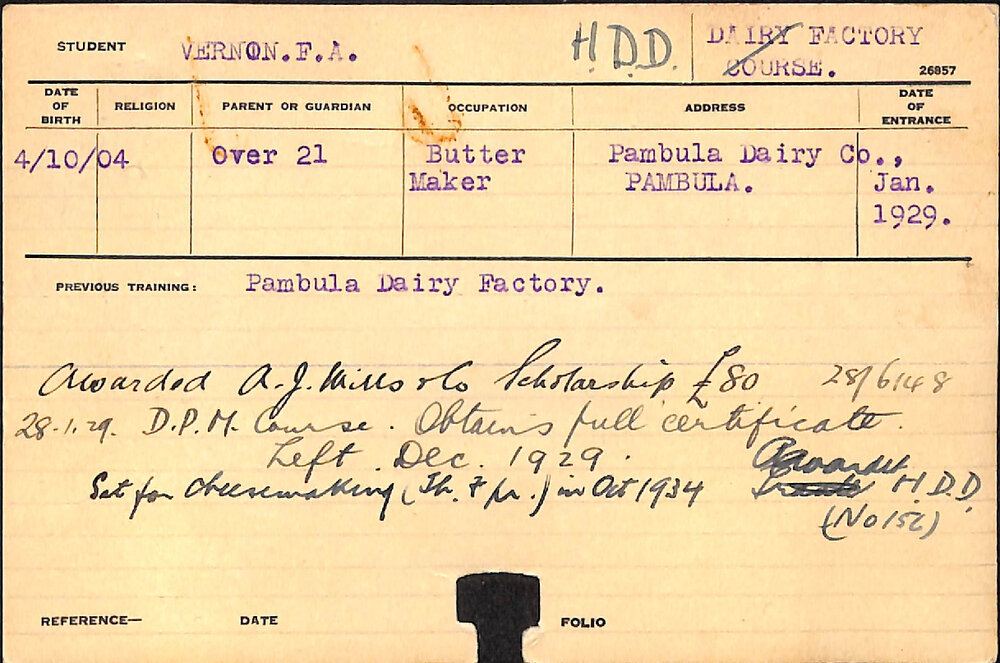 STUDENT VERNON.F.A. H.D.D. DAIRY FACTORY
COURSE. 26857
DATE OF BIRTH RELIGION PARENT OR GUARDIAN OCCUPATION ADDRESS DATE OF ENTRANCE
4/10/04 Over 21 Butter Pambula Dairy Co.,
Maker PAMBULA. Jan.
1929.
PREVIOUS TRAINING: Pambula Dairy Factory.
Awarded A.J. Mills & Co Scholarship £80 28/6148
28.1.29. D.P.M. Course. Obtains full certificate.
Left Dec. 1929.
Sat for cheesemaking (Th. & pr.) in Oct 1934 Awarded H.D.D.
(No 156)
REFERENCE— DATE FOLIO